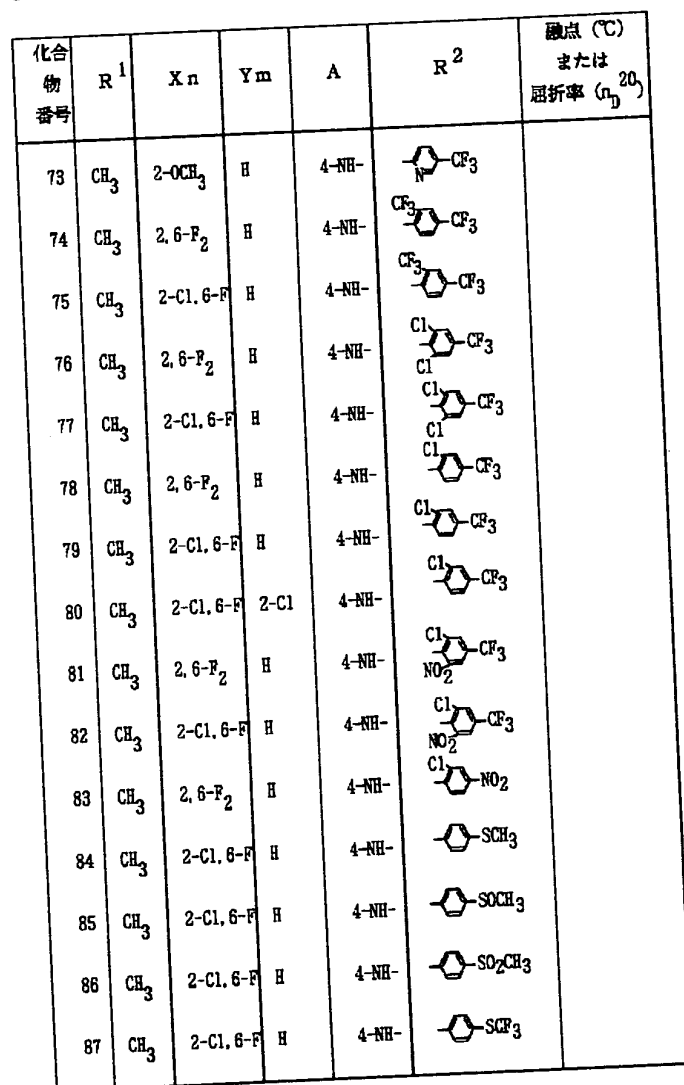 化合物番号 R1 Xn Ym A R2 融点 (℃) または 屈折率 (nD20)
73 CH3 2-OCH3 H 4-NH- N CF3
74 CH3 2,6-F2 H 4-NH- CF3 CF3
75 CH3 2-Cl,6-F H 4-NH- CF3 CF3
76 CH3 2,6-F2 H 4-NH- Cl CF3 Cl
77 CH3 2-Cl,6-F H 4-NH- Cl CF3 Cl
78 CH3 2,6-F2 H 4-NH- Cl CF3
79 CH3 2-Cl,6-F H 4-NH- Cl CF3
80 CH3 2-Cl,6-F 2-Cl 4-NH- Cl CF3
81 CH3 2,6-F2 H 4-NH- Cl CF3 NO2
82 CH3 2-Cl,6-F H 4-NH- Cl CF3 NO2
83 CH3 2,6-F2 H 4-NH- Cl NO2
84 CH3 2-Cl,6-F H 4-NH- SCH3
85 CH3 2-Cl,6-F H 4-NH- SOCH3
86 CH3 2-Cl,6-F H 4-NH- SO2CH3
87 CH3 2-Cl,6-F H 4-NH- SCF3